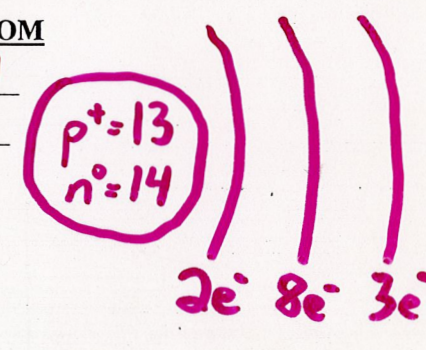 OM
p⁺=13
n⁰=14
2e⁻ 8e⁻ 3e⁻